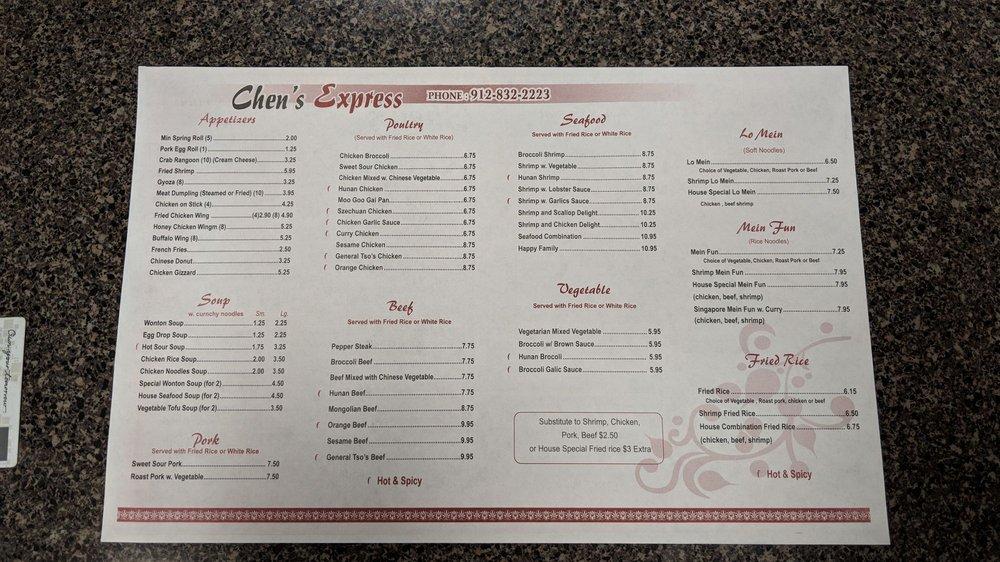 Chen's Express PHONE : 912-832-2223
Appetizers
Min Spring Roll (5) 2.00
Pork Egg Roll (1) 1.25
Crab Rangoon (10) (Cream Cheese) 3.25
Fried Shrimp 5.95
Gyoza (8) 3.25
Meat Dumpling (Steamed or Fried) (10) 3.95
Chicken on Stick (4) 4.25
Fried Chicken Wing (4)2.90 (8) 4.90
Honey Chicken Wingm (8) 5.25
Buffalo Wing (8) 5.25
French Fries 2.50
Chinese Donut 3.25
Chicken Gizzard 5.25
Soup
w. curnchy noodles Sm. Lg.
Wonton Soup 1.25 2.25
Egg Drop Soup 1.25 2.25
Hot Sour Soup 1.75 3.25
Chicken Rice Soup 2.00 3.50
Chicken Noodles Soup 2.00 3.50
Special Wonton Soup (for 2) 4.50
House Seafood Soup (for 2) 4.50
Vegetable Tofu Soup (for 2) 3.50
Pork
Served with Fried Rice or White Rice
Sweet Sour Pork 7.50
Roast Pork w. Vegetable 7.50
Poultry
(Served with Fried Rice or White Rice)
Chicken Broccoli 6.75
Sweet Sour Chicken 6.75
Chicken Mixed w. Chinese Vegetable 6.75
Hunan Chicken 6.75
Moo Goo Gai Pan 6.75
Szechuan Chicken 6.75
Chicken Garlic Sauce 6.75
Curry Chicken 6.75
Sesame Chicken 8.75
General Tso's Chicken 8.75
Orange Chicken 8.75
Beef
Served with Fried Rice or White Rice
Pepper Steak 7.75
Broccoli Beef 7.75
Beef Mixed with Chinese Vegetable 7.75
Hunan Beef 7.75
Mongolian Beef 8.75
Orange Beef 9.95
Sesame Beef 9.95
General Tso's Beef 9.95
Hot & Spicy
Seafood
Served with Fried Rice or White Rice
Broccoli Shrimp 8.75
Shrimp w. Vegetable 8.75
Hunan Shrimp 8.75
Shrimp w. Lobster Sauce 8.75
Shrimp w. Garlics Sauce 8.75
Shrimp and Scallop Delight 10.25
Shrimp and Chicken Delight 10.25
Seafood Combination 10.95
Happy Family 10.95
Vegetable
Served with Fried Rice or White Rice
Vegetarian Mixed Vegetable 5.95
Broccoli w/ Brown Sauce 5.95
Hunan Brocoli 5.95
Broccoli Galic Sauce 5.95
Substitute to Shrimp, Chicken,
Pork, Beef $2.50
or House Special Fried rice $3 Extra
Lo Mein
(Soft Noodles)
Lo Mein 6.50
Choice of Vegetable, Chicken, Roast Pork or Beef
Shrimp Lo Mein 7.25
House Special Lo Mein 7.50
Chicken , beef shrimp
Mein Fun
(Rice Noodles)
Mein Fun 7.25
Choice of Vegetable, Chicken, Roast Pork or Beef
Shrimp Mein Fun 7.95
House Special Mein Fun 7.95
(chicken, beef, shrimp)
Singapore Mein Fun w. Curry 7.95
(chicken, beef, shrimp)
Fried Rice
Fried Rice 6.15
Choice of Vegetable , Roast pork, chicken or beef
Shrimp Fried Rice 6.50
House Combination Fried Rice 6.75
(chicken, beef, shrimp)
Hot & Spicy